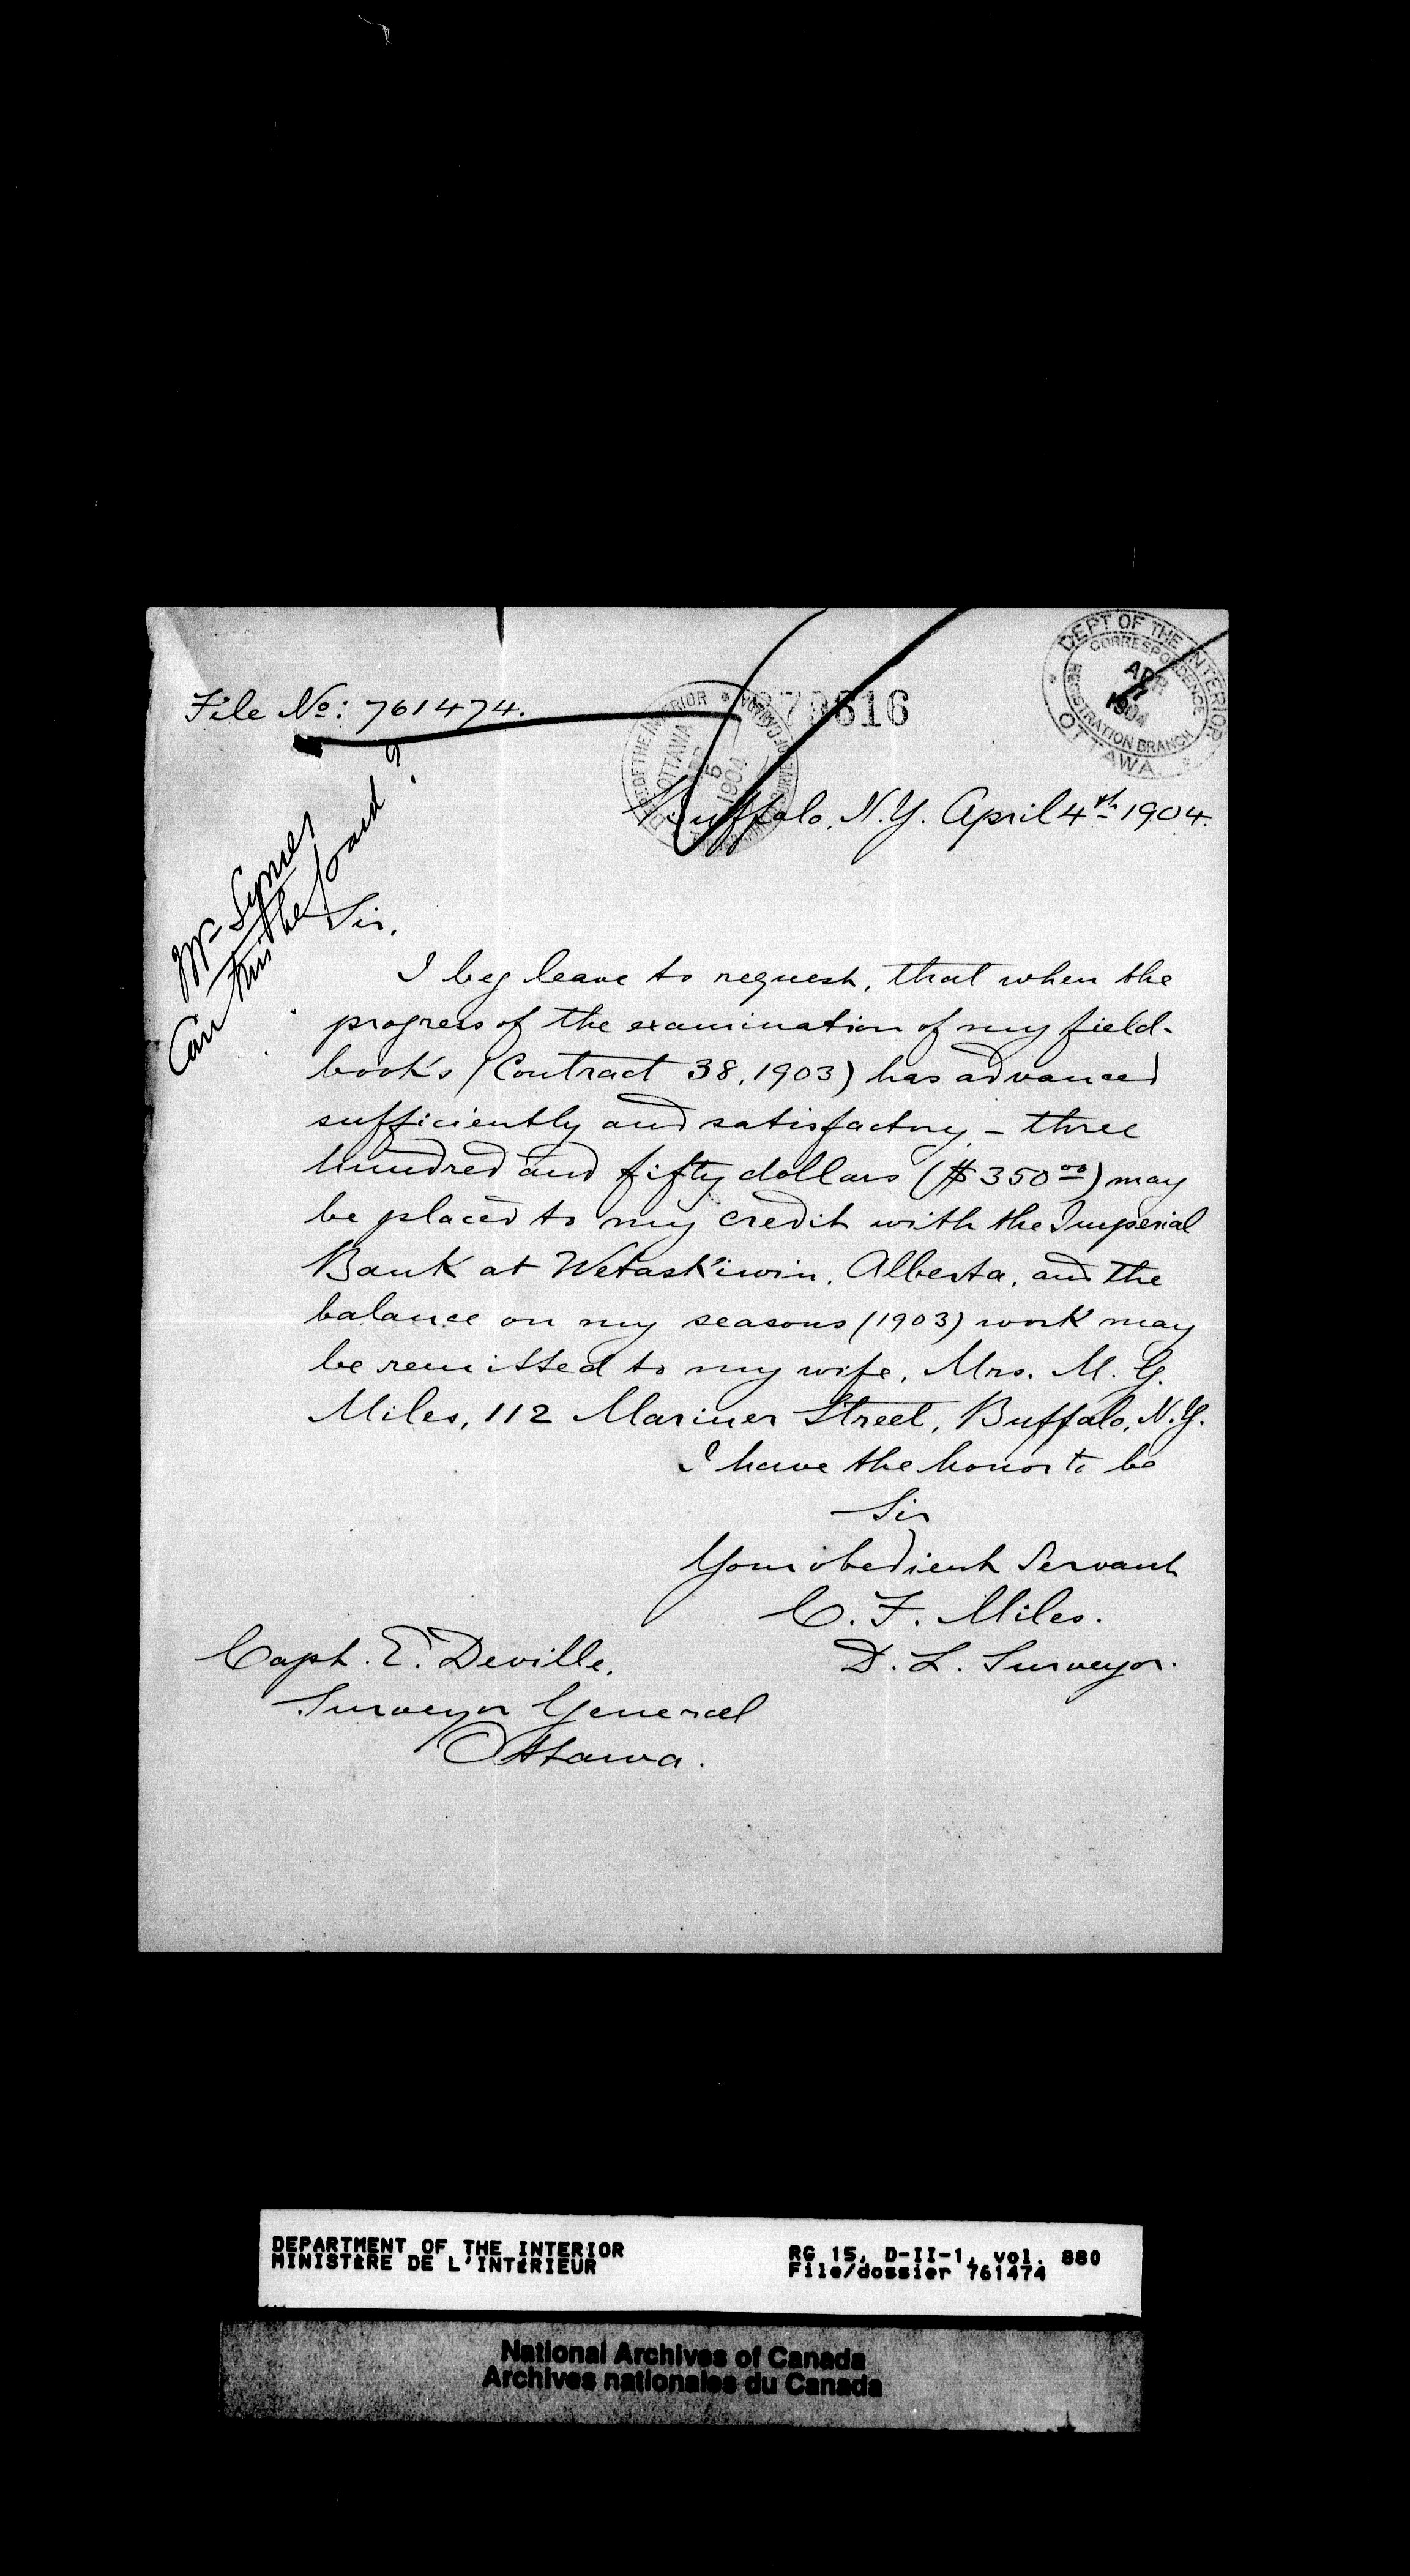 File No: 761474.
DEPT OF THE INTERIOR
CORRESPONDENCE
REGISTRATION BRANCH
APR
1904
OTTAWA
DEPT OF THE INTERIOR
OTTAWA
5
1904
616
Buffalo, N.Y. April 4th 1904.
Mr Symes
Can this be
Sir,
I beg leave to request, that when the
progress of the examination of my field-
books (Contract 38, 1903) has advanced
sufficiently and satisfactory – three
hundred and fifty dollars ($350 00) may
be placed to my credit with the Imperial
Bank at Wetaskiwin, Alberta, and the
balance on my seasons (1903) work may
be remitted to my wife, Mrs. M. G.
Miles, 112 Mariner Street, Buffalo, N.Y.
I have the honor to be
Sir
Your obedient Servant
C. F. Miles.
D. L. Surveyor.
Capt. E. Deville,
Surveyor General
Ottawa.
DEPARTMENT OF THE INTERIOR
MINISTÈRE DE L'INTÉRIEUR
RG 15, D-II-1, vol. 880
File/dossier 761474
National Archives of Canada
Archives nationales du Canada